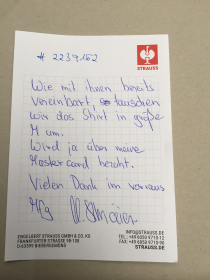 # 2239162
STRAUSS
Wie mit ihnen bereits
vereinbart, tauschen
wir das Shirt in größe
M um.
Wird ja über meine
Mastercard berecht.
Vielen Dank im voraus
Mfg
ENGELBERT STRAUSS GMBH & CO. KG
FRANKFURTER STRASSE 98-108
D-63599 BIEBERGEMÜND
INFO@STRAUSS.DE
TEL. +49 6050 9710-12
FAX +49 6050 9710-90
STRAUSS.DE